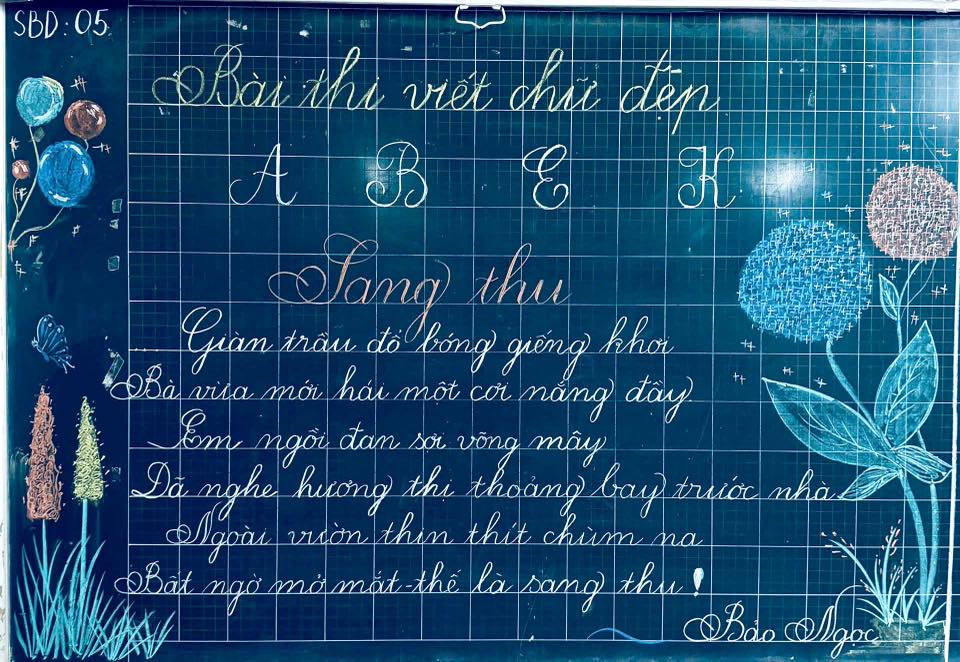 SBD: 05
Bài thi viết chữ đẹp
A B E K
Sang thu
... Giàn trầu đổ bóng giếng khơi
Bà vừa mới hái một cơi nắng đầy
Em ngồi đan sợi võng mây
Đã nghe hương thị thoảng bay trước nhà
Ngoài vườn thin thít chùm na
Bất ngờ mở mắt-thế là sang thu!
Bảo Ngọc